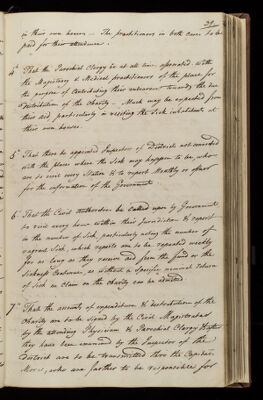 39
in their own houses — The practitioners in both cases to be
paid for their attendance.
4th That the Parochial Clergy be at all times associated with
the Magistracy & Medical practitioners of the place for
the purpose of contributing their endeavours towards the due
distribution of the Charity. Much may be expected from
their aid, particularly in visiting the Sick inhabitants at
their own houses.
5th That there be appointed Inspectors of Districts not connected
with the places where the Sick may happen to be, who
are to visit every Station & to report Monthly or oftener
for the information of the Government
6th That the Civil Authorities be Called upon by Government
to visit every house within their Jurisdiction & report
on the number of Sick, particularly noting the number of
vagrant Sick, which reports are to be repeated weekly
for as long as they receive aid from the fund or the
sickness Continues, as without a Specific nominal return
of Sick no Claim on the Charity can be admitted
7th That the accounts of expenditure & distribution of the
Charity are to be signed by the Civil Magistrates
by the attending Physician & Parochial Clergy & after
they have been examined by the Inspector of the
District are to be transmitted thro the Capitao
Mores, who are further to be responsible for